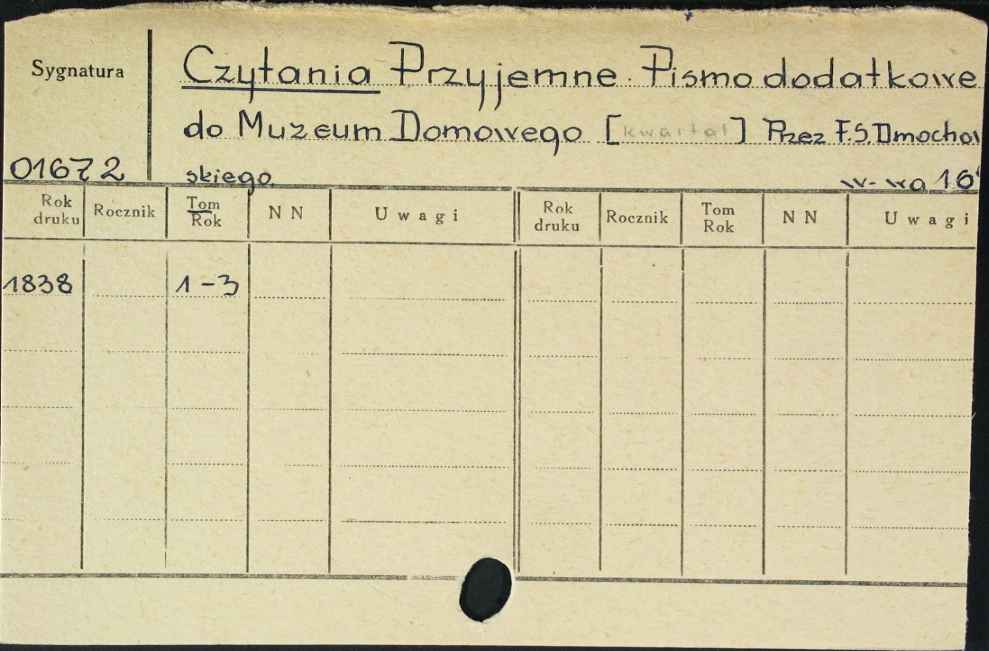 Sygnatura
Czytania Przyjemne. Pismo dodatkowe
do Muzeum Domowego [kwartal] Przez F.S. Dmochow
01672
skiego. W-wa 16°
Rok druku Rocznik Tom Rok NN Uwagi Rok druku Rocznik Tom Rok NN Uwagi
1838 1-3